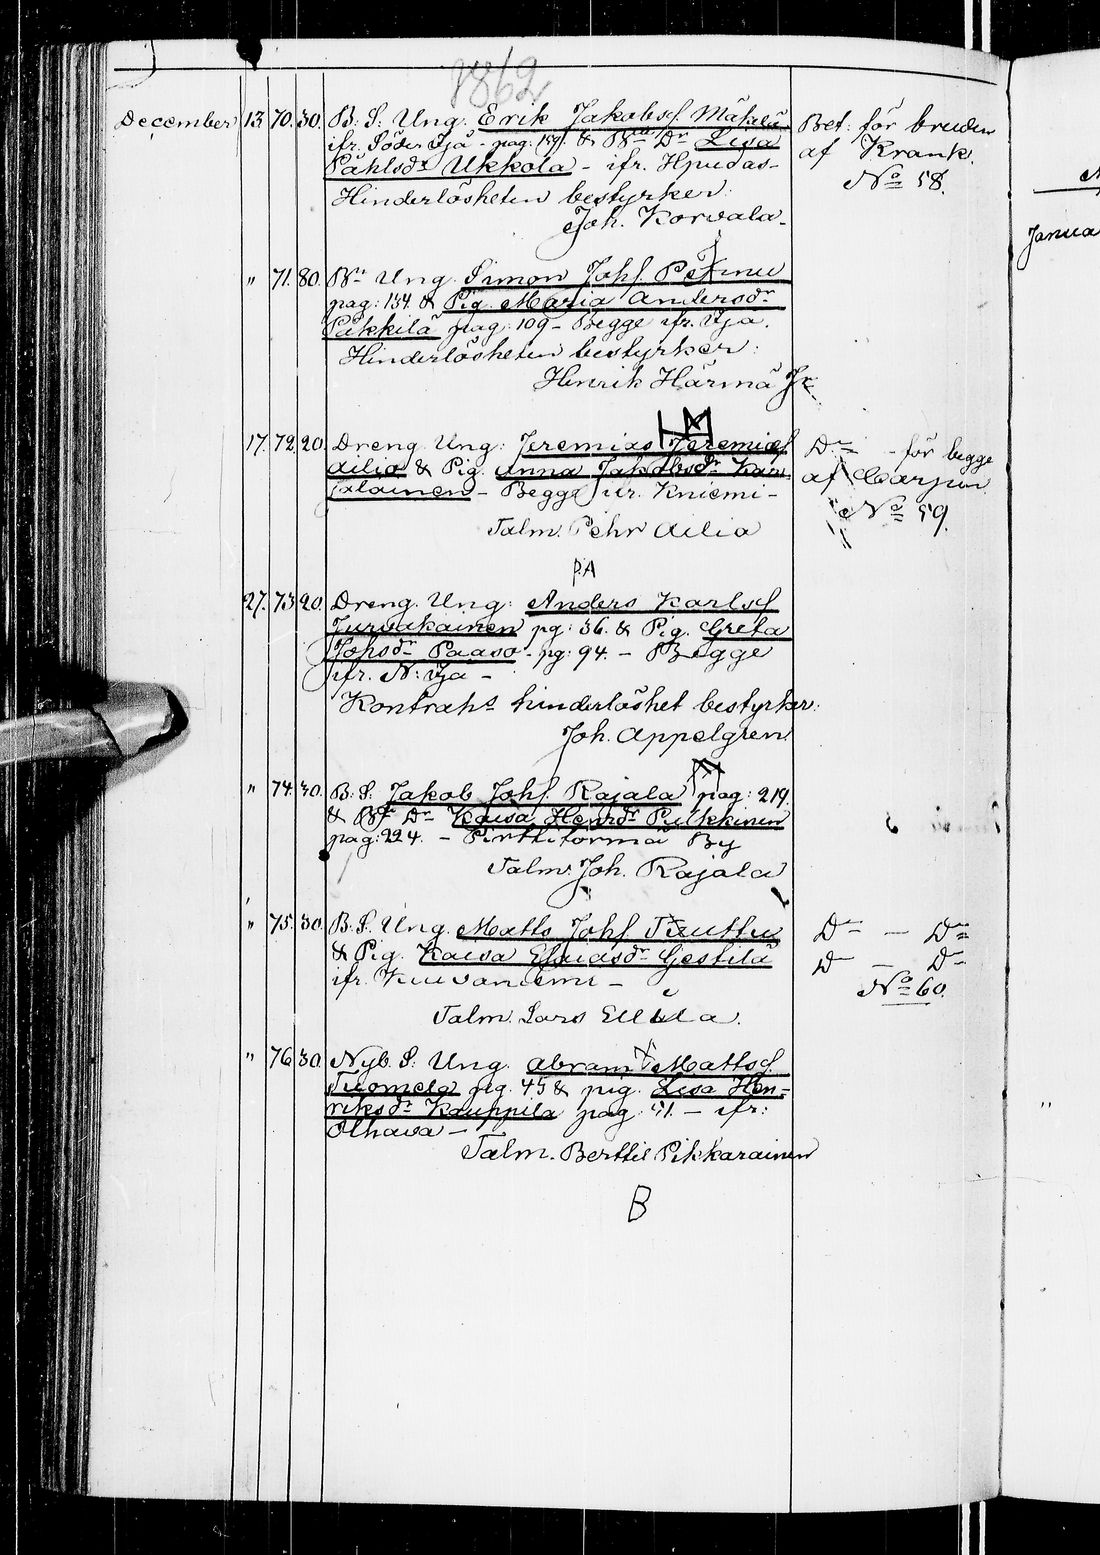 1862
December 13. 70. 30. B. S. Ung. Erik Jakobsf Mäkelä
ifr. Söder Ijä - pag. 157. & Bde Dr Lisa
Påhlsdr Ukkola - ifr. Hpudas-
Hinderlösheten bestyrker:
Joh. Korvala-
Bet: för bruden
af Krank.
No 58.
" 71. 80. Bde Ung. Simon Johf.
pag: 134. & Pig. Maria Andersdr
Pikkilä pag: 109 - Begge ifr. Ija.
Hinderlösheten bestyrker:
Henrik Härmä
17. 72. 20. Dreng Ung: Jeremias Jeremiasf
Ailio & Pig. Anna Jakobsdr
Begge ur. Kniemi -
Talm. Pehr Ailio
Dr - för begge
af Carpen
No 59.
P.A
27. 73. 20. Dreng. Ung: Anders Karlsf
Jurvakainen pg: 36. & Pig. Greta
Johsdr Paaso - pg: 94. - Begge
ifr. N: Ija -
Kontrahs hinderlöshet bestyrker:
Joh. Appelgren.
" 74. 30. B. S. Jakob Johf. Rajala pag: 219.
& Bde Dr Kaisa Henrdr Pulkkinen
pag: 224. - Pirttitörmä By
Talm. Joh. Rajala
" 75. 30. B. S. Ung. Matts Johf
& Pig. Kaisa Esaiasdr Gestilä
ifr. Kuivaniemi -
Talm. Lars Ellilä.
Dr - Dr
Dr - Dr
No 60.
" 76. 30. Nyb. S: Ung. Abram Mattsf.
Tuomela pg. 45 & pig. Lisa Hen-
riksdr Kauppila pag: 51. - ifr:
Olhava -
Talm. Berttil Pikkarainen
B
Janua
"